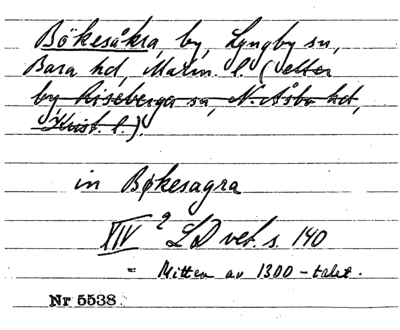 Bökesåkra, by, Lyngby sn,
Bara hd, Malm. l. (eller
by Riseberga sn, N. Åsbo hd,
Krist. l.).
in Bøkesagra
XIV 2 LD vet. s. 140
= Mitten av 1300-talet.
Nr 5538.